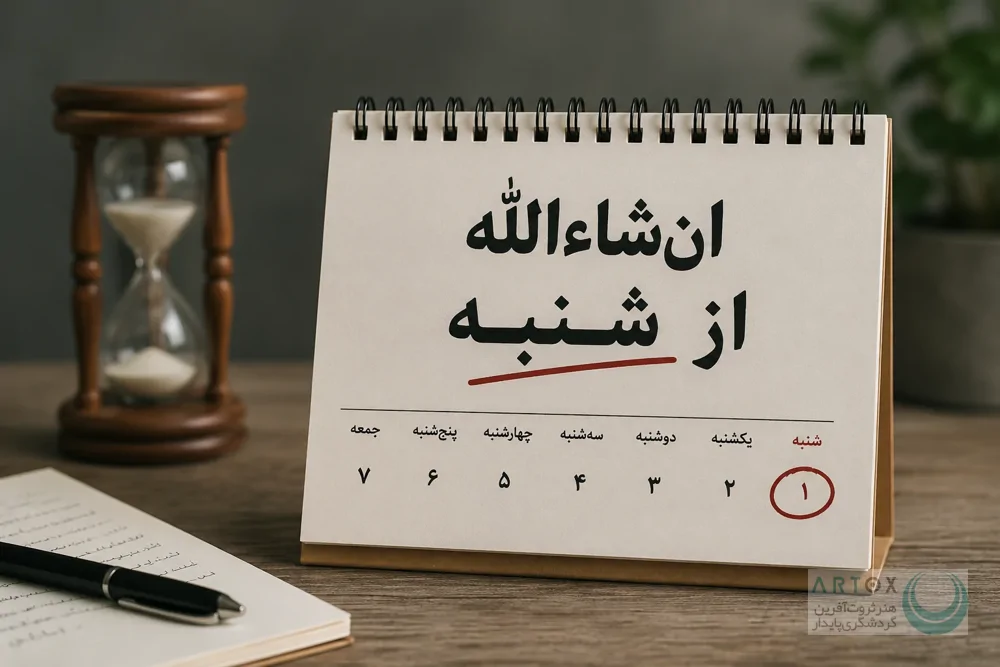 ان‌شاءالله
از شنبه
شنبه یکشنبه دوشنبه سه‌شنبه چهارشنبه پنج‌شنبه جمعه
۱ ۲ ۳ ۴ ۵ ۶ ۷
ARTOX
هنر ثروت‌آفرین
گردشگری پایدار